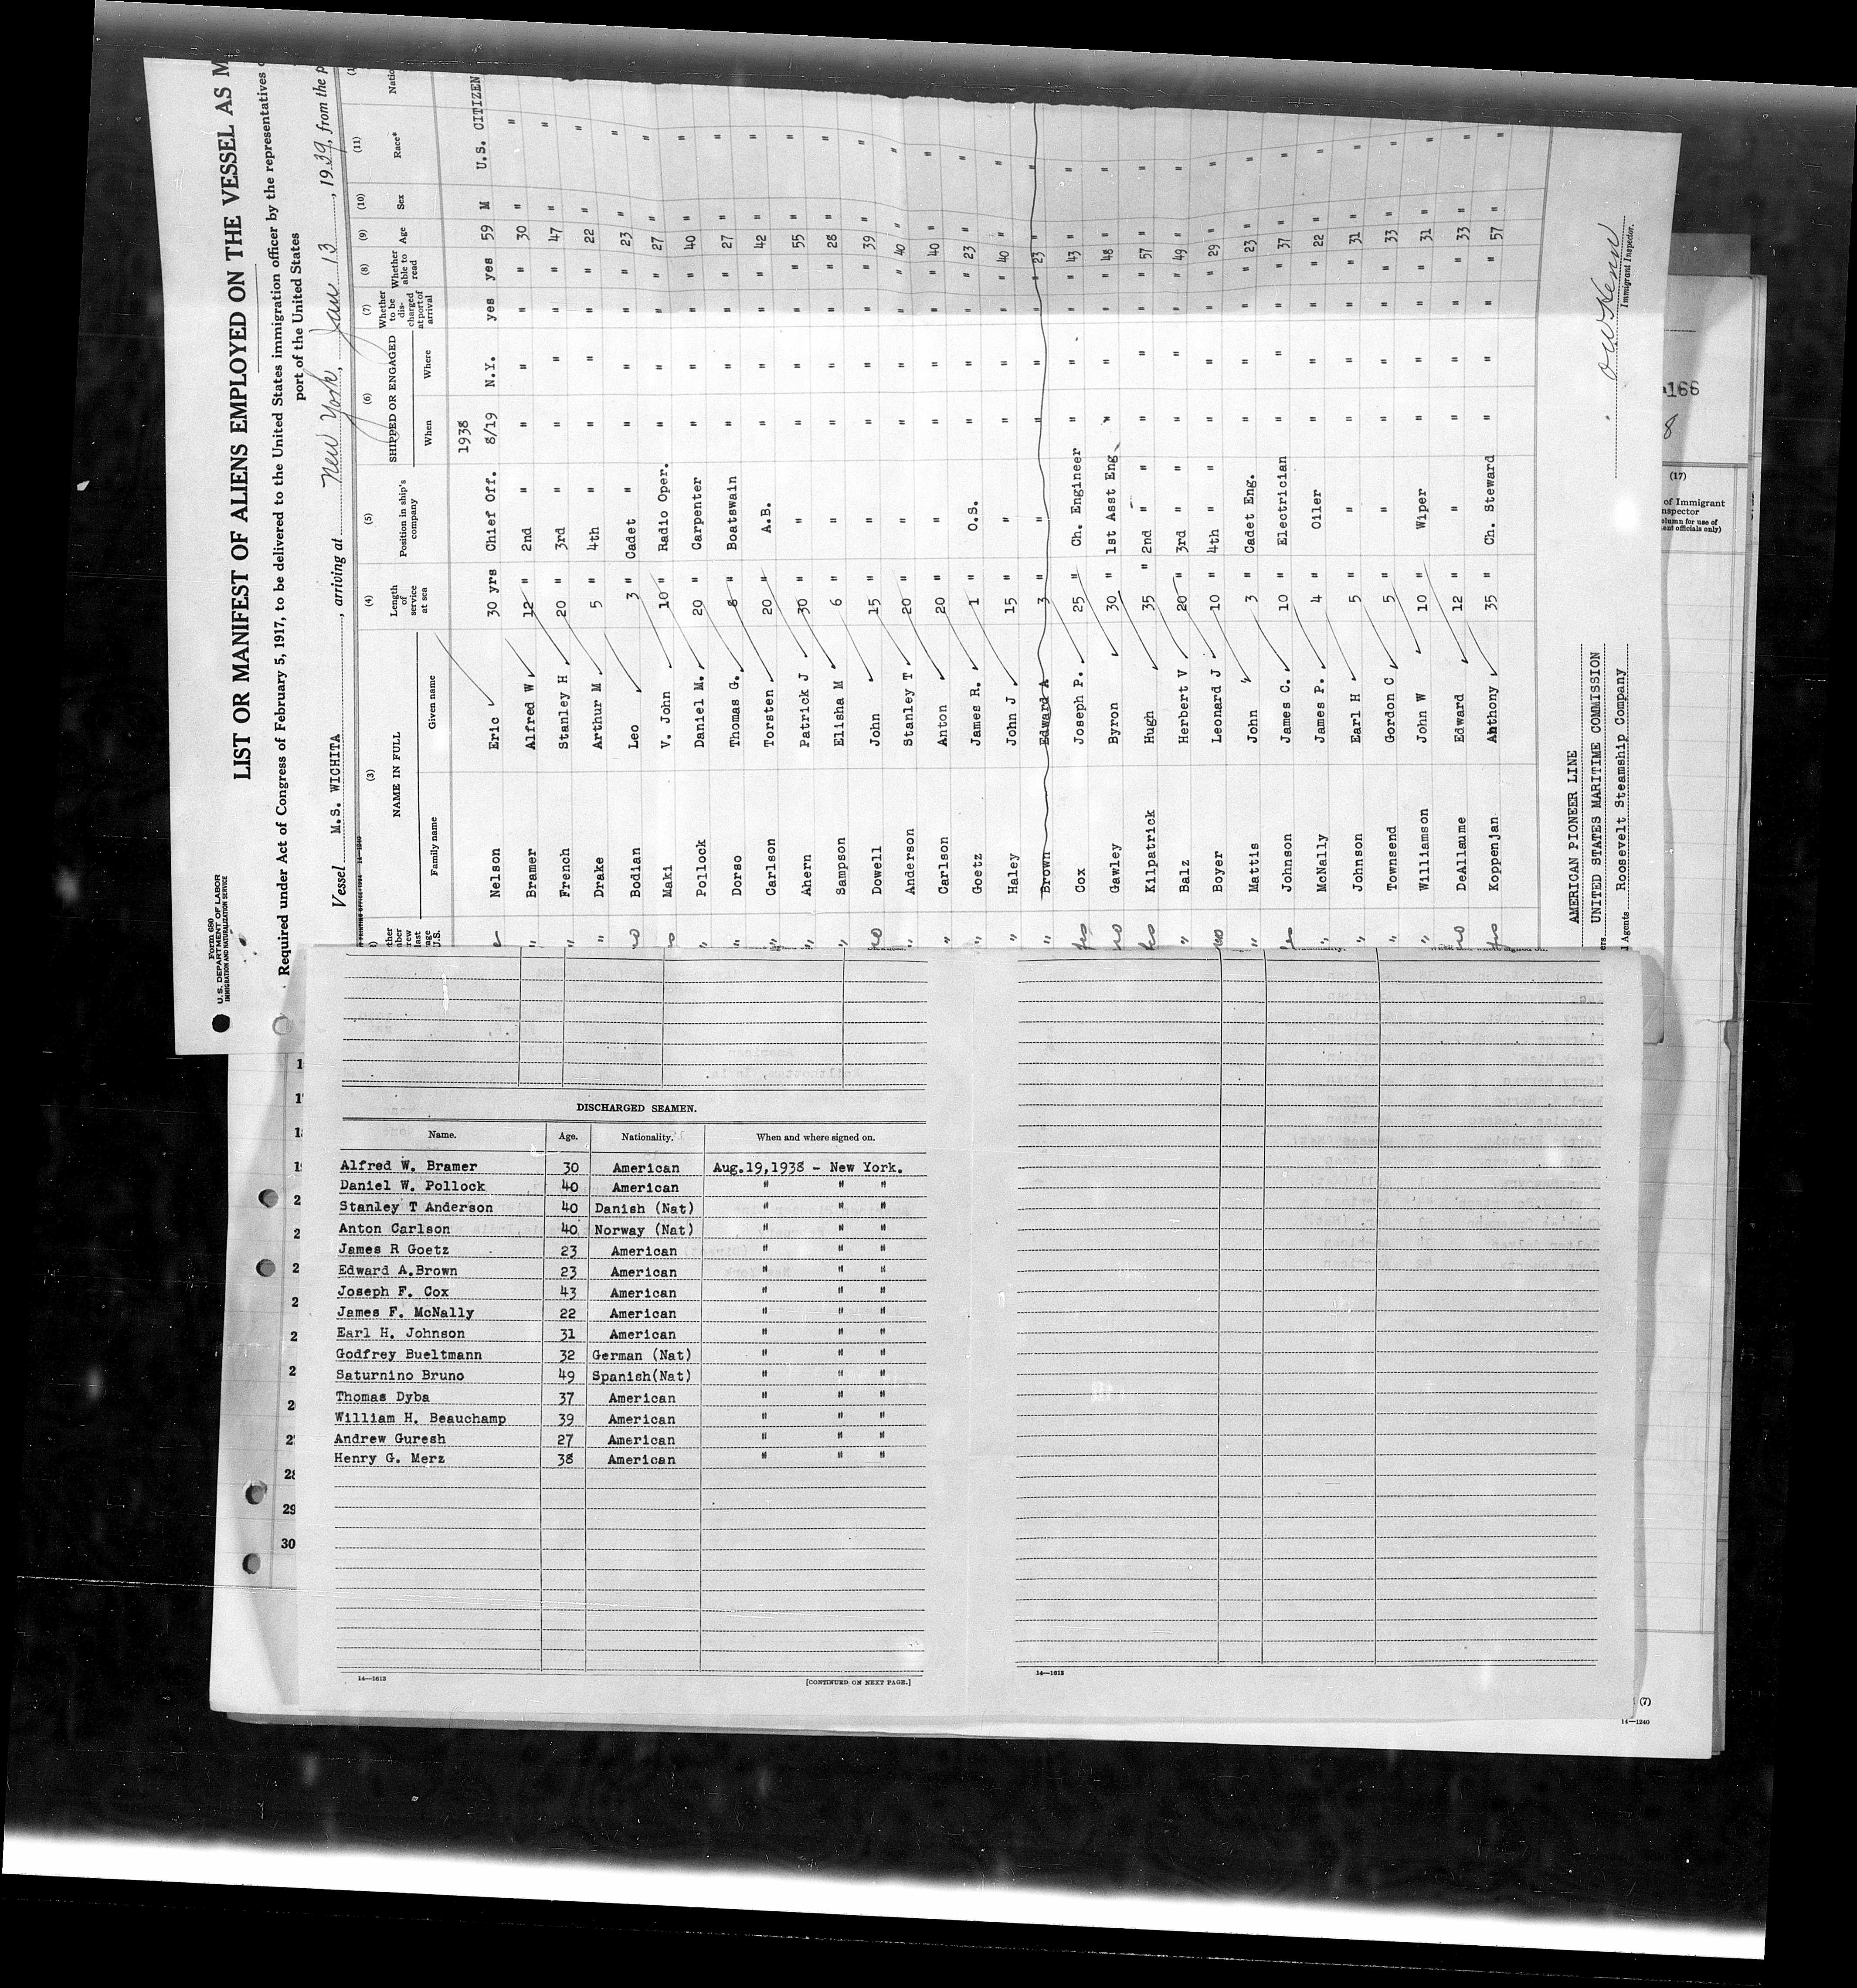 Form 680
U.S. DEPARTMENT OF LABOR
IMMIGRATION AND NATURALIZATION SERVICE
LIST OR MANIFEST OF ALIENS EMPLOYED ON THE VESSEL AS M
Required under Act of Congress of February 5, 1917, to be delivered to the United States immigration officer by the representatives
port of the United States
Vessel M.S. WICHITA, arriving at New York, Jan 13, 1939, from the p
(3) (4) (5) (6) (7) (8) (9) (10) (11)
NAME IN FULL Length of service at sea Position in ship's company SHIPPED OR ENGAGED Whether to be discharged at port of arrival Whether able to read Age Sex Race* Natio
Family name Given name When Where
1938
Nelson Eric 30 yrs Chief Off. 8/19 N.Y. yes yes 59 M U.S. CITIZEN
" Bramer Alfred W 12 " 2nd " " " " " 30 " "
" French Stanley H 20 " 3rd " " " " " 47 " "
" Drake Arthur M 5 " 4th " " " " " 22 " "
no Bodian Leo 3 " Cadet " " " " " 23 " "
Maki V. John 10 " Radio Oper. " " " " 27 " "
" Pollock Daniel M. 20 " Carpenter " " " " 40 " "
" Dorso Thomas G. 8 " Boatswain " " " " 27 " "
" Carlson Torsten 20 " A.B. " " " " 42 " "
" Ahern Patrick J 30 " " " " " " 55 " "
" Sampson Elisha M 6 " " " " " " 28 " "
no Dowell John 15 " " " " " " 39 " "
" Anderson Stanley T 20 " " " " " " 40 " "
" Carlson Anton 20 " " " " " " 40 " "
" Goetz James R. 1 " O.S. " " " " 23 " "
" Haley John J 15 " " " " " " 40 " "
" Brown Edward A 3 " " " " " " 23 " "
yes Cox Joseph P. 25 " Ch. Engineer " " " " 43 " "
no Gawley Byron 30 " 1st Asst Eng " " " " 48 " "
yes Kilpatrick Hugh 35 " 2nd " " " " " " 57 " "
" Balz Herbert V 20 " 3rd " " " " " " 49 " "
no Boyer Leonard J 10 " 4th " " " " " " 29 " "
" Mattis John 3 " Cadet Eng. " " " " 23 " "
yes Johnson James C. 10 " Electrician " " " " 37 " "
" McNally James P. 4 " Oiler " " " " 22 " "
" Johnson Earl H 5 " " " " " " 31 " "
" Townsend Gordon C 5 " " " " " " 33 " "
" Williamson John W 10 " Wiper " " " " 31 " "
no DeAllaume Edward 12 " " " " " 33 " "
yes Koppenjan Anthony 35 " Ch. Steward " " " " 57 " "
AMERICAN PIONEER LINE
UNITED STATES MARITIME COMMISSION
Agents Roosevelt Steamship Company
Immigrant Inspector.
166
8
(17)
of Immigrant
nspector
olumn for use of
ent officials only)
DISCHARGED SEAMEN.
Name. Age. Nationality. When and where signed on.
Alfred W. Bramer 30 American Aug.19,1938 - New York.
Daniel W. Pollock 40 American " " "
Stanley T Anderson 40 Danish (Nat) " " "
Anton Carlson 40 Norway (Nat) " " "
James R Goetz 23 American " " "
Edward A.Brown 23 American " " "
Joseph F. Cox 43 American " " "
James F. McNally 22 American " " "
Earl H. Johnson 31 American " " "
Godfrey Bueltmann 32 German (Nat) " " "
Saturnino Bruno 49 Spanish(Nat) " " "
Thomas Dyba 37 American " " "
William H. Beauchamp 39 American " " "
Andrew Guresh 27 American " " "
Henry G. Merz 38 American " " "
28
29
30
14—1613
[CONTINUED ON NEXT PAGE.]
14—1613
(7)
14—1240